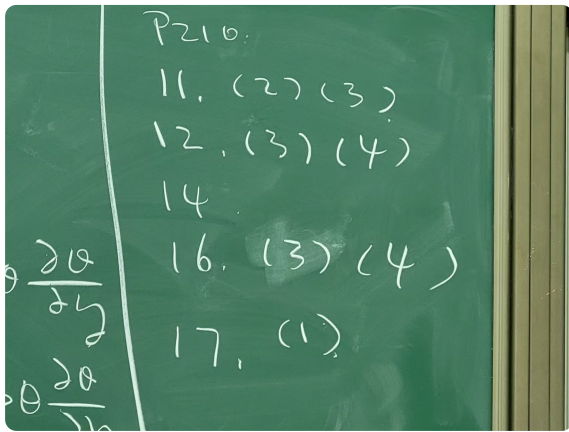 P210.
11. (2) (3)
12. (3) (4)
14.
16. (3) (4)
17. (1)
θ ∂θ/∂y
θ ∂θ/